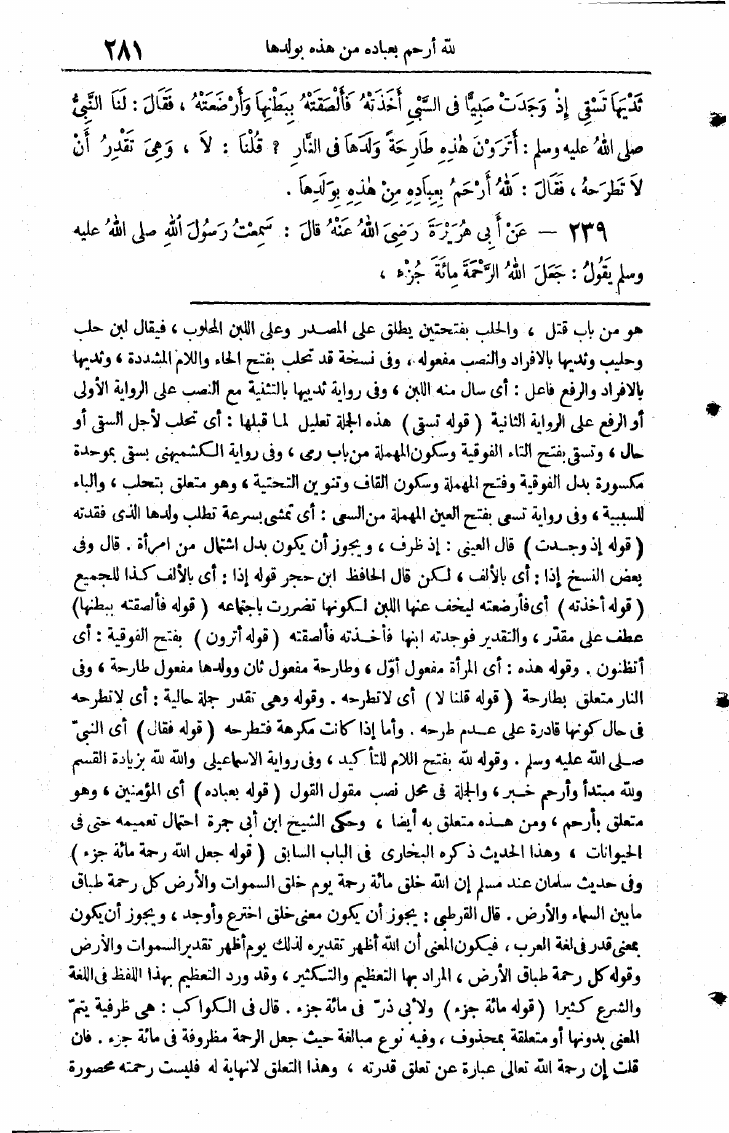 لله أرحم بعباده من هذه بولدها ٢٨١
ثَدْيَهَا تَسْقِي إِذْ وَجَدَتْ صَبِيًّا فى السَّبْيِ أَخَذَتْهُ فَأَلْصَقَتْهُ بِبَطْنِهَا وَأَرْضَعَتْهُ ، فَقَالَ : لَنَا النَّبِيُّ
صلى اللهُ عليه وسلم : أَتَرَوْنَ هٰذِهِ طَارِحَةً وَلَدَهَا فى النَّارِ ? قُلْنَا : لاَ ، وَهِىَ تَقْدِرُ أَنْ
لاَ تَطْرَحَهُ ، فَقَالَ : لَلّٰهُ أَرْحَمُ بِعِبَادِهِ مِنْ هٰذِهِ بِوَلَدِهَا .
٢٣٩ — عَنْ أَبِى هُرَيْرَةَ رَضِىَ اللهُ عَنْهُ قَالَ : سَمِعْتُ رَسُولَ اللهِ صلى اللهُ عليه
وسلم يَقُولُ : جَعَلَ اللهُ الرَّحْمَةَ مِائَةَ جُزْءٍ ،
هو من باب قتل ، والحلب بفتحتين يطلق على المصدر وعلى اللبن المحلوب ، فيقال لبن حلب
وحليب وثديها بالافراد والنصب مفعوله ، وفى نسخة قد تحلب بفتح الحاء واللام المشددة ، وثديها
بالافراد والرفع فاعل : أى سال منه اللبن ، وفى رواية ثدييها بالتثنية مع النصب على الرواية الأولى
أو الرفع على الرواية الثانية ( قوله تسقى ) هذه الجملة تعليل لما قبلها : أى تحلب لأجل السقى أو
حال ، وتسقى بفتح التاء الفوقية وسكون المهملة من باب رمى ، وفى رواية الكشميهنى بسقى بموحدة
مكسورة بدل الفوقية وفتح المهملة وسكون القاف وتنوين التحتية ، وهو متعلق بتحلب ، والباء
للسببية ، وفى رواية تسعى بفتح العين المهملة من السعى : أى تمشى بسرعة تطلب ولدها الذى فقدته
( قوله إذ وجدت ) قال العينى : إذ ظرف ، ويجوز أن يكون بدل اشتمال من امرأة . قال وفى
بعض النسخ إذا : أى بالألف ، لكن قال الحافظ ابن حجر قوله إذا : أى بالألف كذا للجميع
( قوله أخذته ) أى فأرضعته ليخف عنها اللبن لكونها تضررت باجتماعه ( قوله فألصقته ببطنها)
عطف على مقدّر ، والتقدير فوجدته ابنها فأخذته فألصقته ( قوله أترون ) بفتح الفوقية : أى
أتظنون . وقوله هذه : أى المرأة مفعول أوّل ، وطارحة مفعول ثان وولدها مفعول طارحة ، وفى
النار متعلق بطارحة ( قوله قلنا لا ) أى لاتطرحه . وقوله وهى تقدر جملة حالية : أى لاتطرحه
فى حال كونها قادرة على عدم طرحه . وأما إذا كانت مكرهة فتطرحه ( قوله فقال ) أى النبىّ
صلى الله عليه وسلم . وقوله لله بفتح اللام للتأكيد ، وفى رواية الاسماعيلى والله لله بزيادة القسم
ولله مبتدأ وأرحم خبر ، والجملة فى محل نصب مقول القول ( قوله بعباده ) أى المؤمنين ، وهو
متعلق بأرحم ، ومن هذه متعلق به أيضا ، وحكى الشيخ ابن أبى جمرة احتمال تعميمه حتى فى
الحيوانات ، وهذا الحديث ذكره البخارى فى الباب السابق ( قوله جعل الله رحمة مائة جزء )
وفى حديث سلمان عند مسلم إن الله خلق مائة رحمة يوم خلق السموات والأرض كل رحمة طباق
مابين السماء والأرض . قال القرطبى : يجوز أن يكون معنى خلق اخترع وأوجد ، ويجوز أن يكون
بمعنى قدر فى لغة العرب ، فيكون المعنى أن الله أظهر تقديره لذلك يوم أظهر تقدير السموات والأرض
وقوله كل رحمة طباق الأرض ، المراد بها التعظيم والتكثير ، وقد ورد التعظيم بهذا اللفظ فى اللغة
والشرع كثيرا ( قوله مائة جزء ) ولأبى ذرّ فى مائة جزء . قال فى الكواكب : هى ظرفية يتمّ
المعنى بدونها أو متعلقة بمحذوف ، وفيه نوع مبالغة حيث جعل الرحمة مظروفة فى مائة جزء . فان
قلت إن رحمة الله تعالى عبارة عن تعلق قدرته ، وهذا التعلق لانهاية له فليست رحمته محصورة